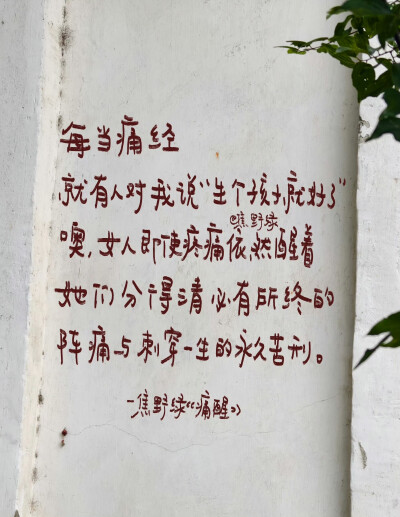 每当痛经
就有人对我说“生个孩子就好了”
@焦野绿
噢,女人即使疼痛依然醒着
她们分得清必有所终的
阵痛与刺穿一生的永久苦刑。
—焦野绿《痛醒》